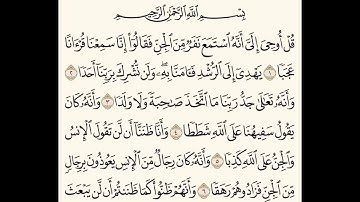 بِسْمِ اللَّهِ الرَّحْمَٰنِ الرَّحِيمِ
قُلْ أُوحِيَ إِلَيَّ أَنَّهُ اسْتَمَعَ نَفَرٌ مِّنَ الْجِنِّ فَقَالُوا إِنَّا سَمِعْنَا قُرْءَانًا
عَجَبًا ١ يَهْدِي إِلَى الرُّشْدِ فَـَٔامَنَّا بِهِۦ وَلَن نُّشْرِكَ بِرَبِّنَا أَحَدًا ٢
وَأَنَّهُۥ تَعَٰلَىٰ جَدُّ رَبِّنَا مَا اتَّخَذَ صَٰحِبَةً وَلَا وَلَدًا ٣ وَأَنَّهُۥ كَانَ
يَقُولُ سَفِيهُنَا عَلَى اللَّهِ شَطَطًا ٤ وَأَنَّا ظَنَنَّا أَن لَّن تَقُولَ الْإِنسُ
وَالْجِنُّ عَلَى اللَّهِ كَذِبًا ٥ وَأَنَّهُۥ كَانَ رِجَالٌ مِّنَ الْإِنسِ يَعُوذُونَ بِرِجَالٍ
مِّنَ الْجِنِّ فَزَادُوهُمْ رَهَقًا ٦ وَأَنَّهُمْ ظَنُّوا كَمَا ظَنَنتُمْ أَن لَّن يَبْعَثَ